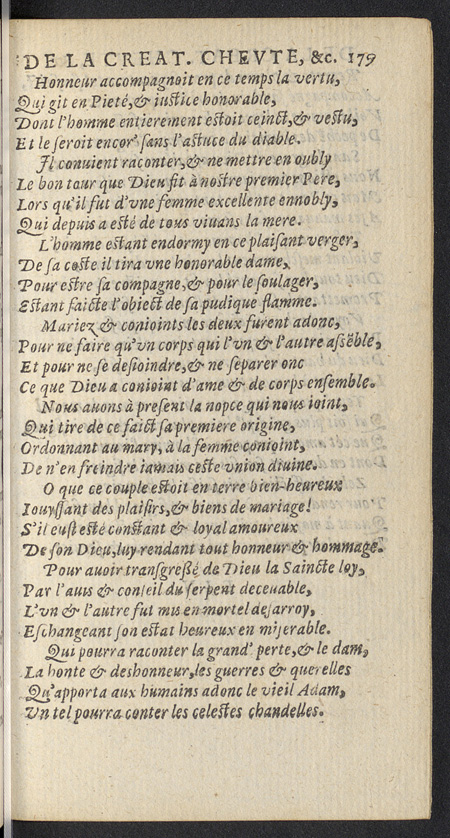 DE LA CREAT. CHEVTE, &c. 179
Honneur accompagnoit en ce temps la vertu,
Qui git en Pieté, & iustice honorable,
Dont l'homme entierement estoit ceinct, & vestu,
Et le seroit encor' sans l'astuce du diable.
Il conuient raconter, & ne mettre en oubly
Le bon tour que Dieu fit à nostre premier Pere,
Lors qu'il fut d'vne femme excellente ennobly,
Qui depuis a esté de tous viuans la mere.
L'homme estant endormy en ce plaisant verger,
De sa coste il tira vne honorable dame,
Pour estre sa compagne, & pour le soulager,
Estant faicte l'obiect de sa pudique flamme.
Mariez & conioints les deux furent adonc,
Pour ne faire qu'vn corps qui l'vn & l'autre assẽble,
Et pour ne se desioindre, & ne separer onc
Ce que Dieu a conioint d'ame & de corps ensemble.
Nous auons à present la nopce qui nous ioint,
Qui tire de ce faict sa premiere origine,
Ordonnant au mary, à la femme conioint,
De n'en freindre iamais ceste vnion diuine.
O que ce couple estoit en terre bien-heureux
Iouyssant des plaisirs, & biens de mariage!
S'il eust esté constant & loyal amoureux
De son Dieu, luy rendant tout honneur & hommage.
Pour auoir transgressé de Dieu la Saincte loy,
Par l'auis & conseil du serpent deceuable,
L'vn & l'autre fut mis en mortel desarroy,
Eschangeant son estat heureux en miserable.
Qui pourra raconter la grand' perte, & le dam,
La honte & deshonneur, les guerres & querelles
Qu'apporta aux humains adonc le vieil Adam,
Vn tel pourra conter les celestes chandelles.